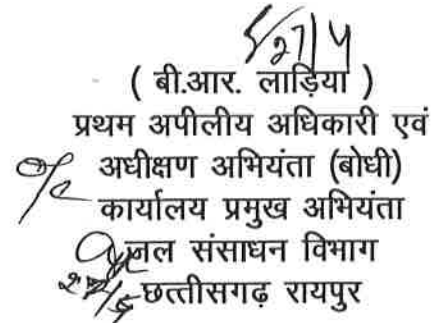 27/4
( बी.आर. लाड़िया )
प्रथम अपीलीय अधिकारी एवं
अधीक्षण अभियंता (बोधी)
कार्यालय प्रमुख अभियंता
जल संसाधन विभाग
छत्तीसगढ़ रायपुर